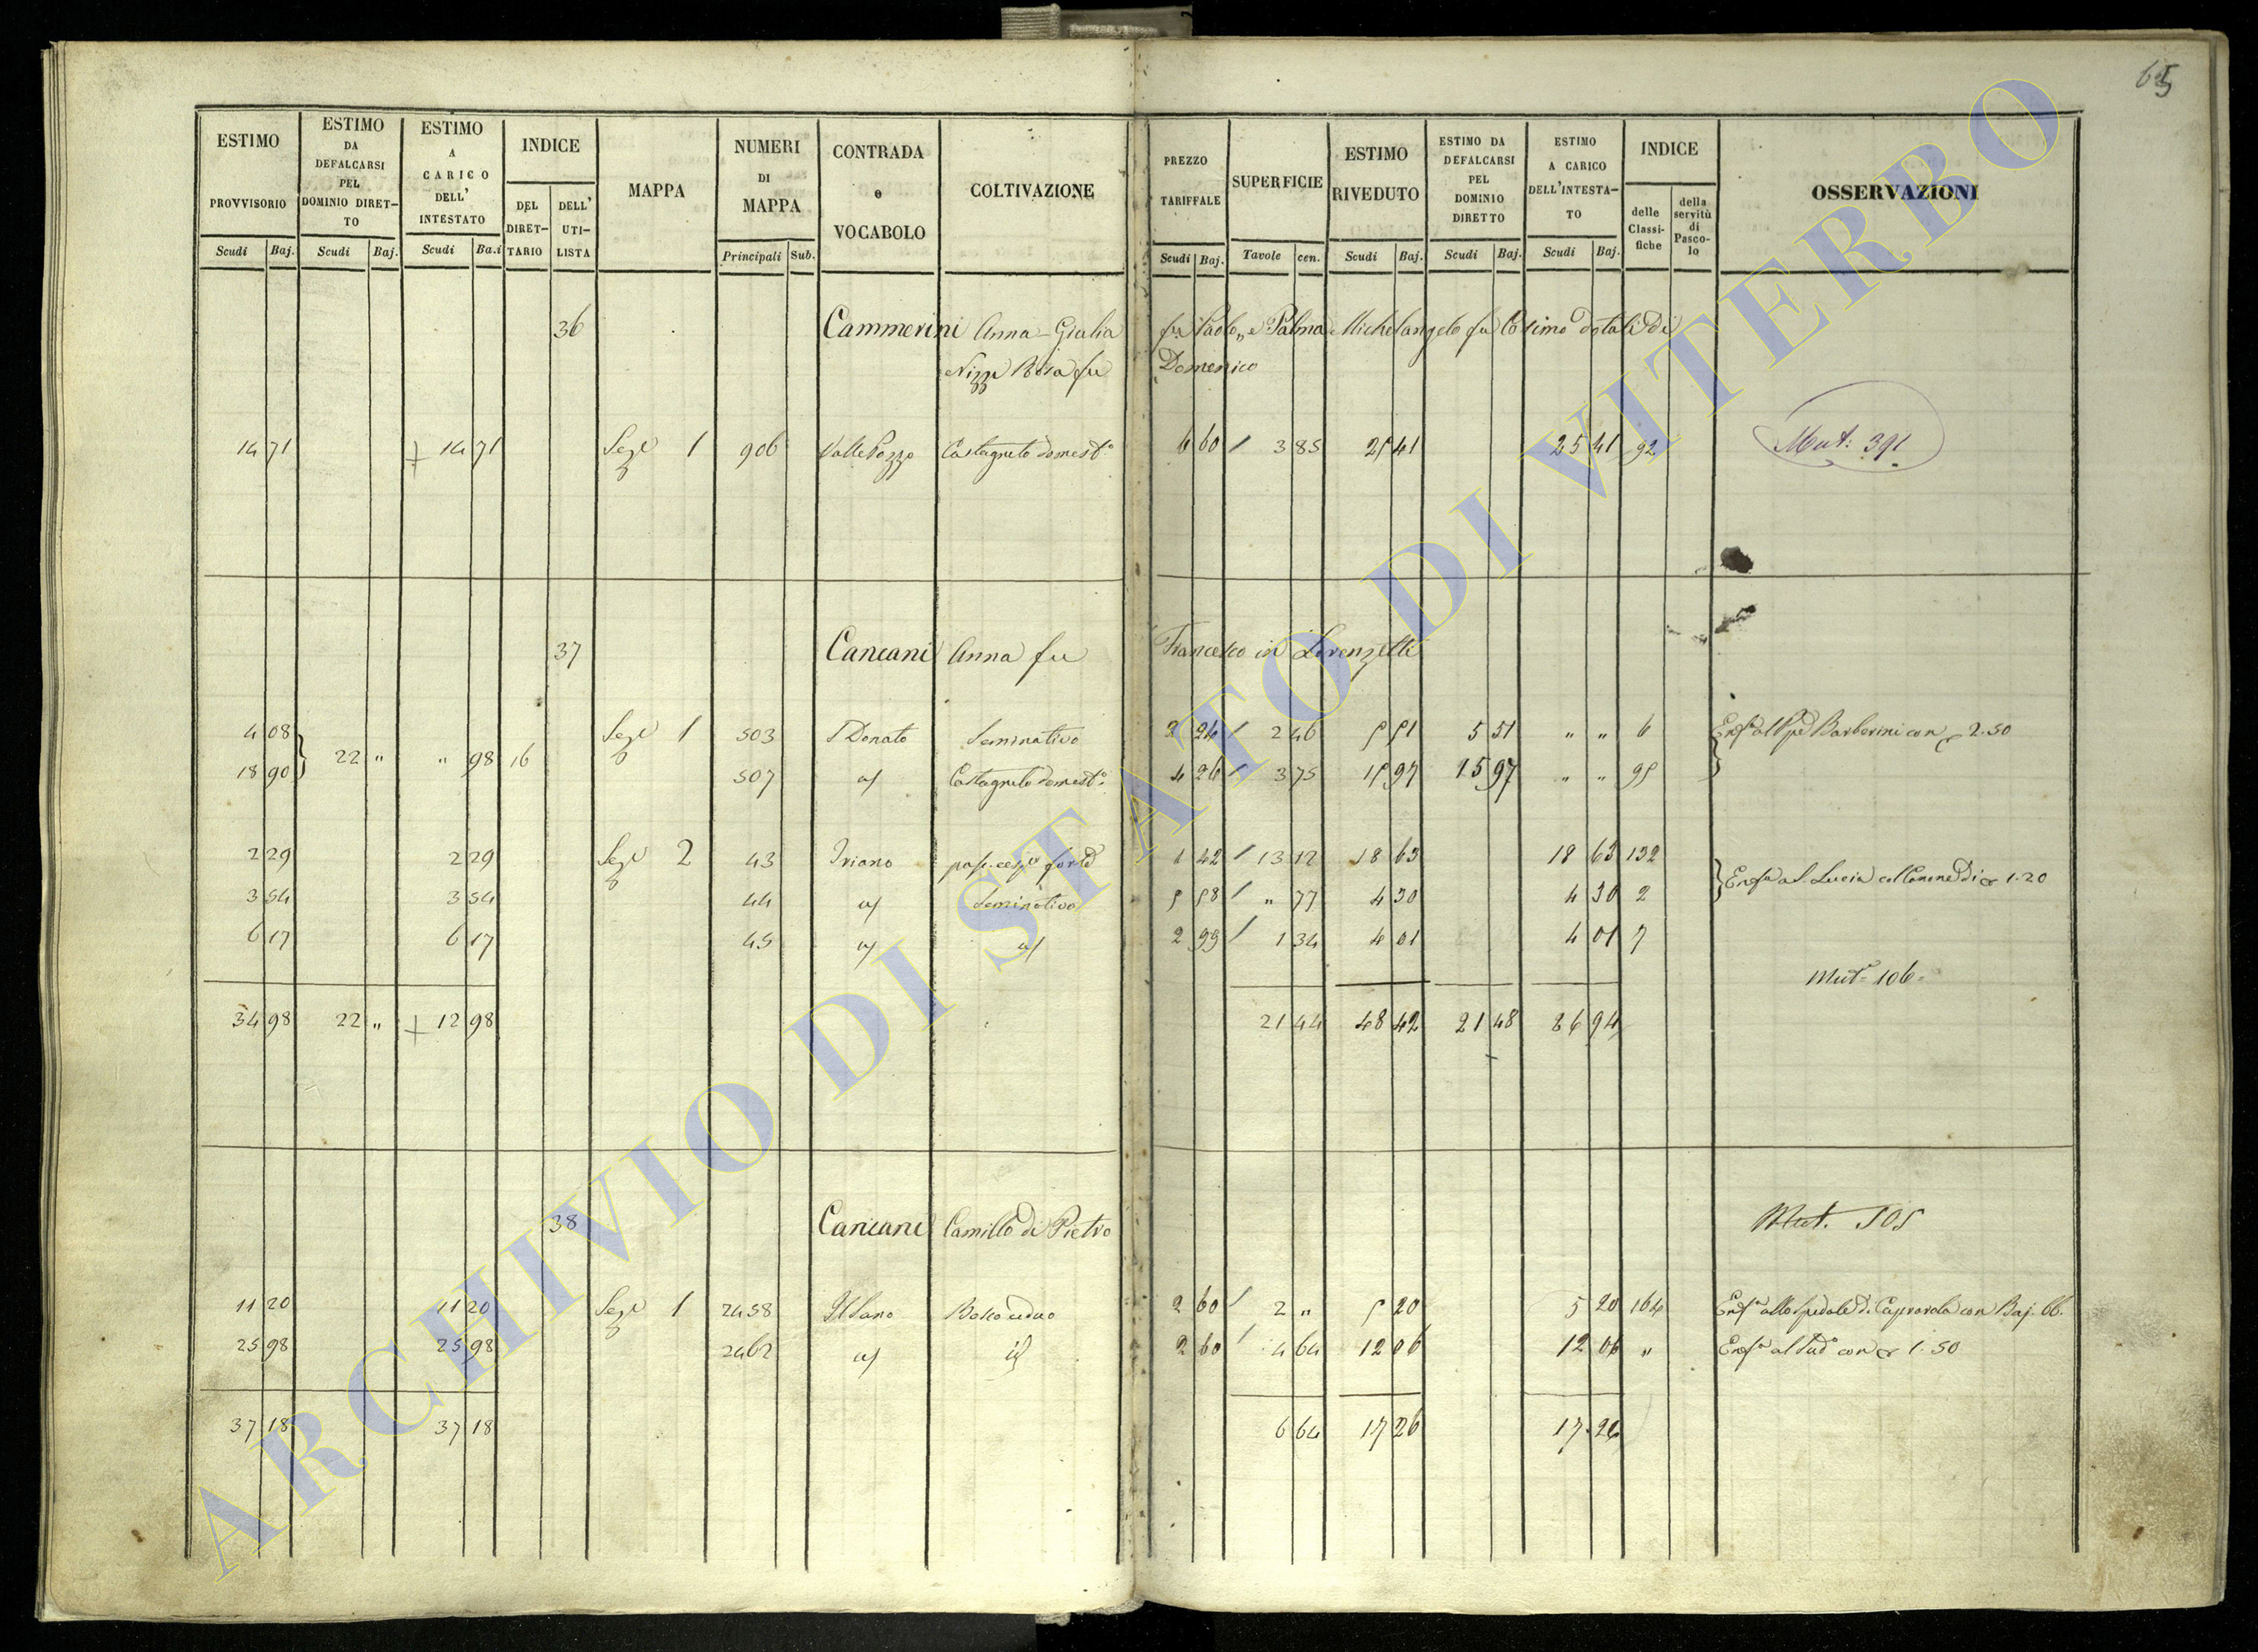 65
ESTIMO PROVVISORIO Scudi Baj.
ESTIMO DA DEFALCARSI PEL DOMINIO DIRET-TO Scudi Baj.
ESTIMO A CARICO DELL' INTESTATO Scudi Ba.i
INDICE DEL DIRET-TARIO DELL' UTI-LISTA
MAPPA
NUMERI DI MAPPA Principali Sub.
CONTRADA o VOCABOLO
COLTIVAZIONE
PREZZO TARIFFALE Scudi Baj.
SUPERFICIE Tavole cen.
ESTIMO RIVEDUTO Scudi Baj.
ESTIMO DA DEFALCARSI PEL DOMINIO DIRETTO Scudi Baj.
ESTIMO A CARICO DELL'INTESTA-TO Scudi Baj.
INDICE delle Classi-fiche della servitù di Pasco-lo
OSSERVAZIONI
36 Cammerini Anna Giulia fu Paolo, e Palma Michelangelo fu Cosimo dotali di
Nizzi Rosa fu Domenico
14 71 + 14 71 Sez.e 1 906 Valle Pozzo Castagneto domest.o 6 60 / 3 85 25 41 25 41 92 Mut: 391
37 Cancani Anna fu Francesco in Lorenzetti
4 08 Sez.e 1 503 S Donato Seminativo 2 24 / 2 46 5 51 5 51 " " 6 Enf.a al Ppe Barberini con 2.50
22 " " 98 16
18 90 507 a/ Castagneto domest.o 4 26 / 3 75 15 97 15 97 " " 95
2 29 2 29 Sez.e 2 43 Iriano 1 42 / 13 12 18 63 18 63 132
Enf.a a S. Lucia 1.20
3 54 3 54 44 a/ Seminativo 5 58 / " 77 4 30 4 30 2
6 17 6 17 45 a/ a/ 2 99 / 1 34 4 01 4 01 7
Mut.e 106
34 98 22 " + 12 98 21 44 48 42 21 48 26 94
38 Cancani Camillo di Pietro Mut. 505
11 20 11 20 Sez.e 1 2458 Bosco ceduo 2 60 / 2 " 5 20 5 20 164 Enf.a allo Spedale di Caprarola con Baj. 66.
25 98 25 98 2462 a/ id 2 60 / 4 64 12 06 12 06 " Enf.a al Sud.o con 1.50
37 18 37 18 6 64 17 26 17.26
ARCHIVIO DI STATO DI VITERBO